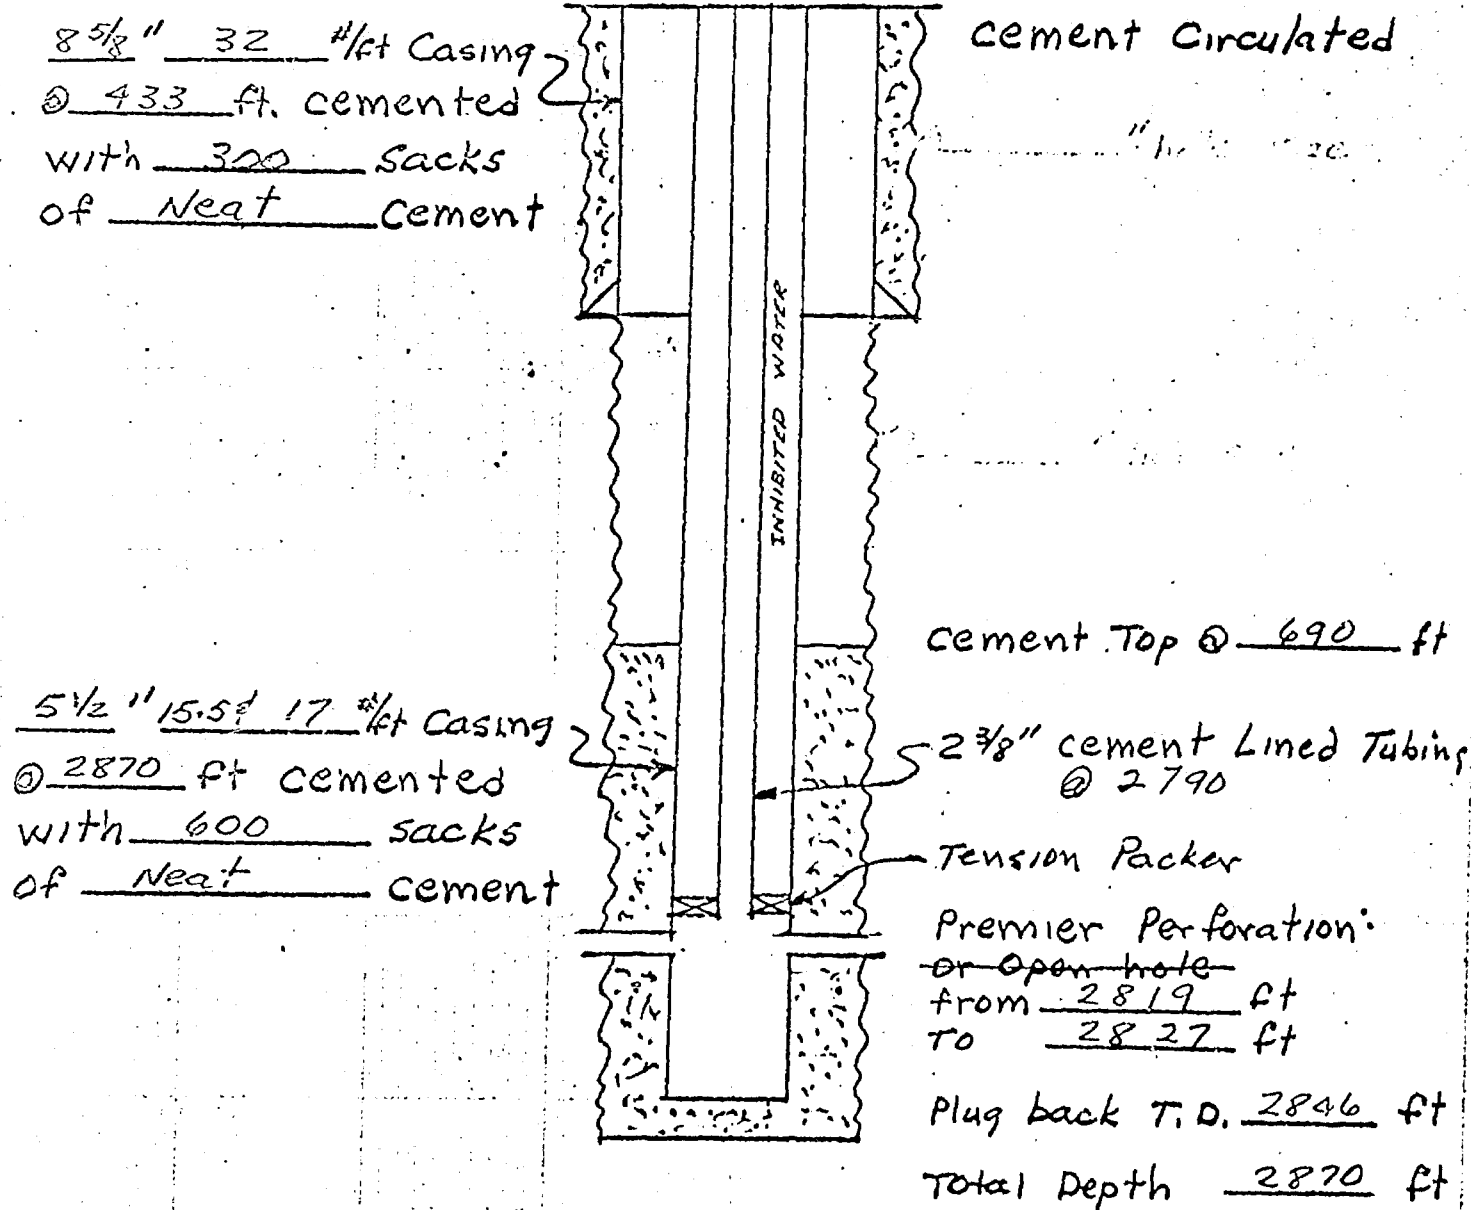 8 5/8" 32 #/ft Casing
@ 433 ft. cemented
with 300 Sacks
of Neat Cement
Cement Circulated
INHIBITED WATER
Cement Top @ 690 ft
5 1/2" 15.5 & 17 #/ft Casing
@ 2870 ft cemented
with 600 sacks
of Neat cement
2 3/8" cement Lined Tubing
@ 2790
Tension Packer
Premier Perforation:
or Open hole
from 2819 ft
To 2827 ft
Plug back T.D. 2846 ft
Total Depth 2870 ft